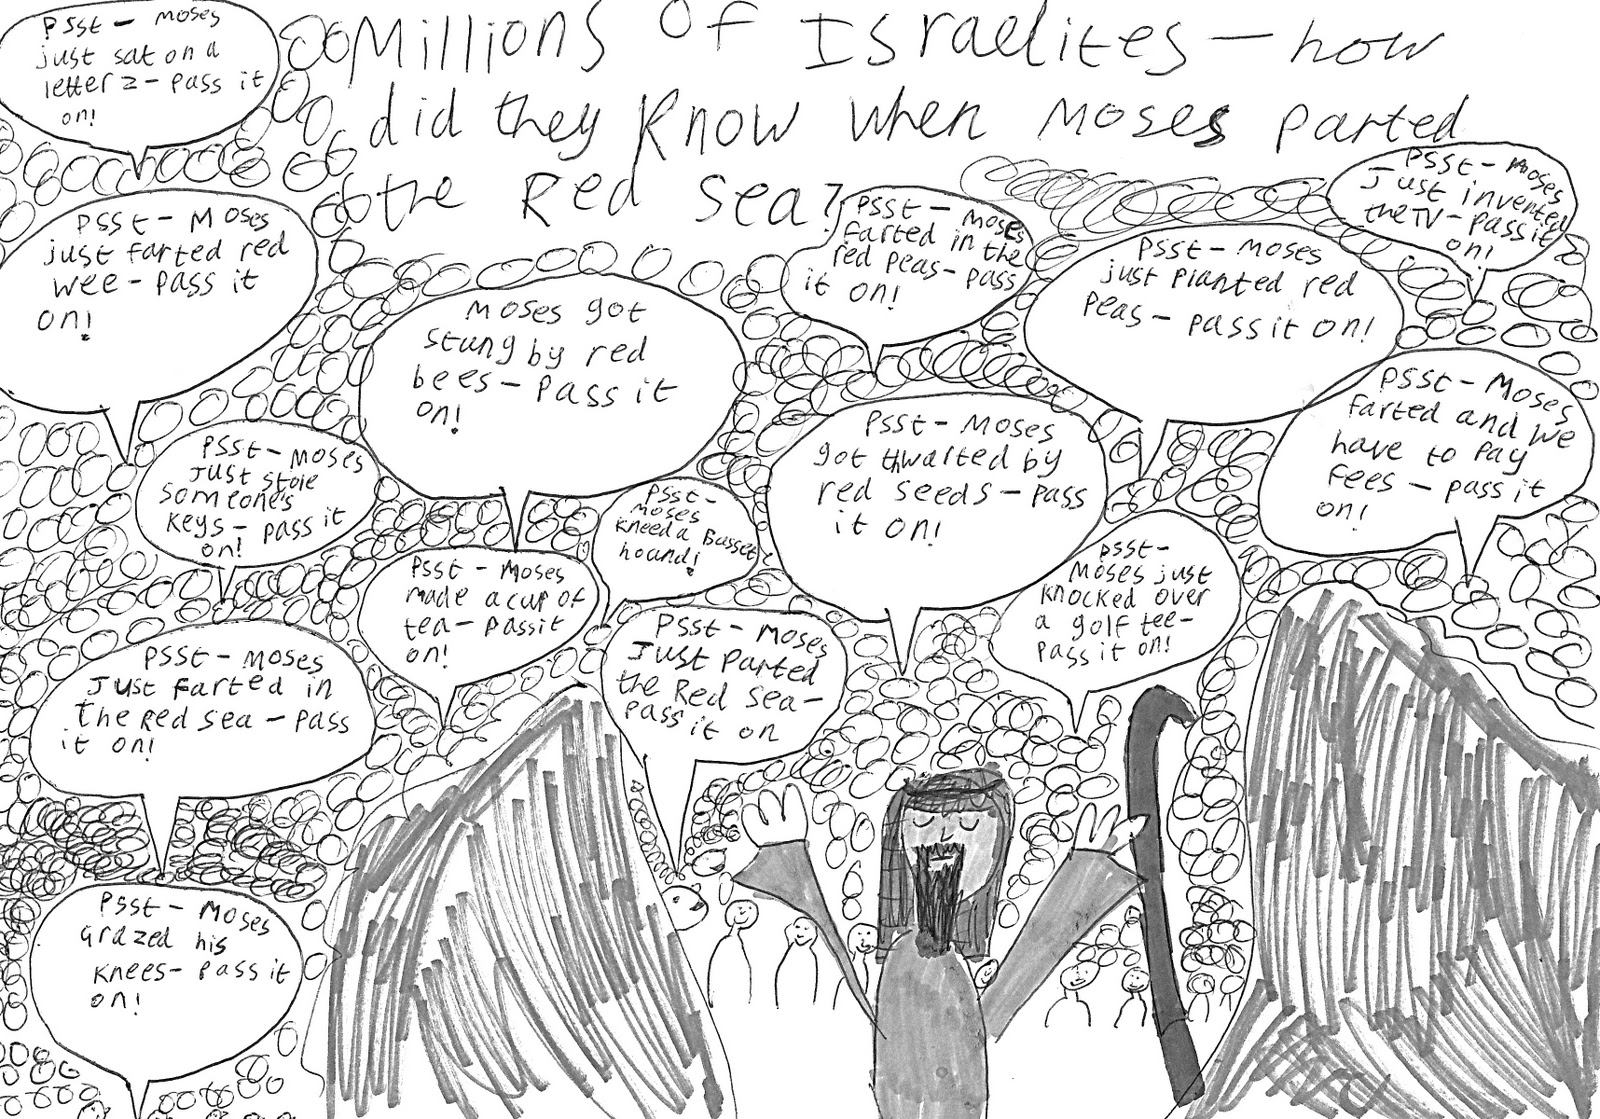 Millions of Israelites — how
did they know when Moses parted
the Red Sea?
Psst — Moses
just sat on a
letter z — pass it
on!
Psst — Moses
just farted red
wee — pass it
on!
Moses got
stung by red
bees — pass it
on!
Psst — Moses
farted in the
red peas — pass
it on!
Psst — Moses
just planted red
peas — pass it on!
Psst — Moses
Just invented
the TV — pass it
on!
Psst — Moses
farted and we
have to pay
fees — pass it
on!
Psst — Moses
got thwarted by
red seeds — pass
it on!
Psst — Moses
Just stole
someone's
keys — pass it
on!
Psst —
Moses
kneed a Basset
hound!
Psst — Moses
made a cup of
tea — pass it
on!
Psst —
Moses just
knocked over
a golf tee —
pass it on!
Psst — Moses
Just Parted
the Red Sea —
pass
it on
Psst — Moses
Just farted in
the Red Sea — pass
it on!
Psst — Moses
grazed his
knees — pass it
on!